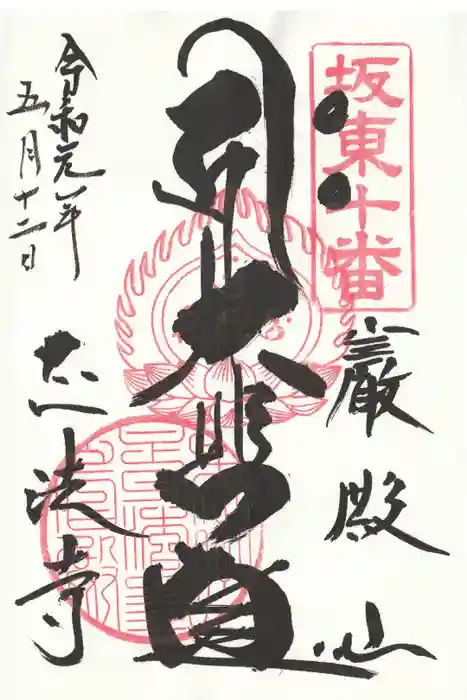 坂東十番
巌殿山
大悲
正法寺
令和元年
五月十二日